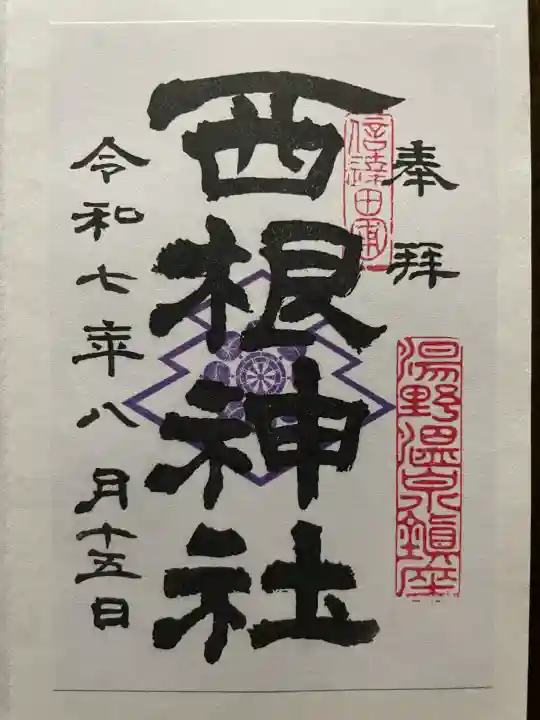 奉拜
湯野温泉鎮座
西根神社
令和七年八月十五日